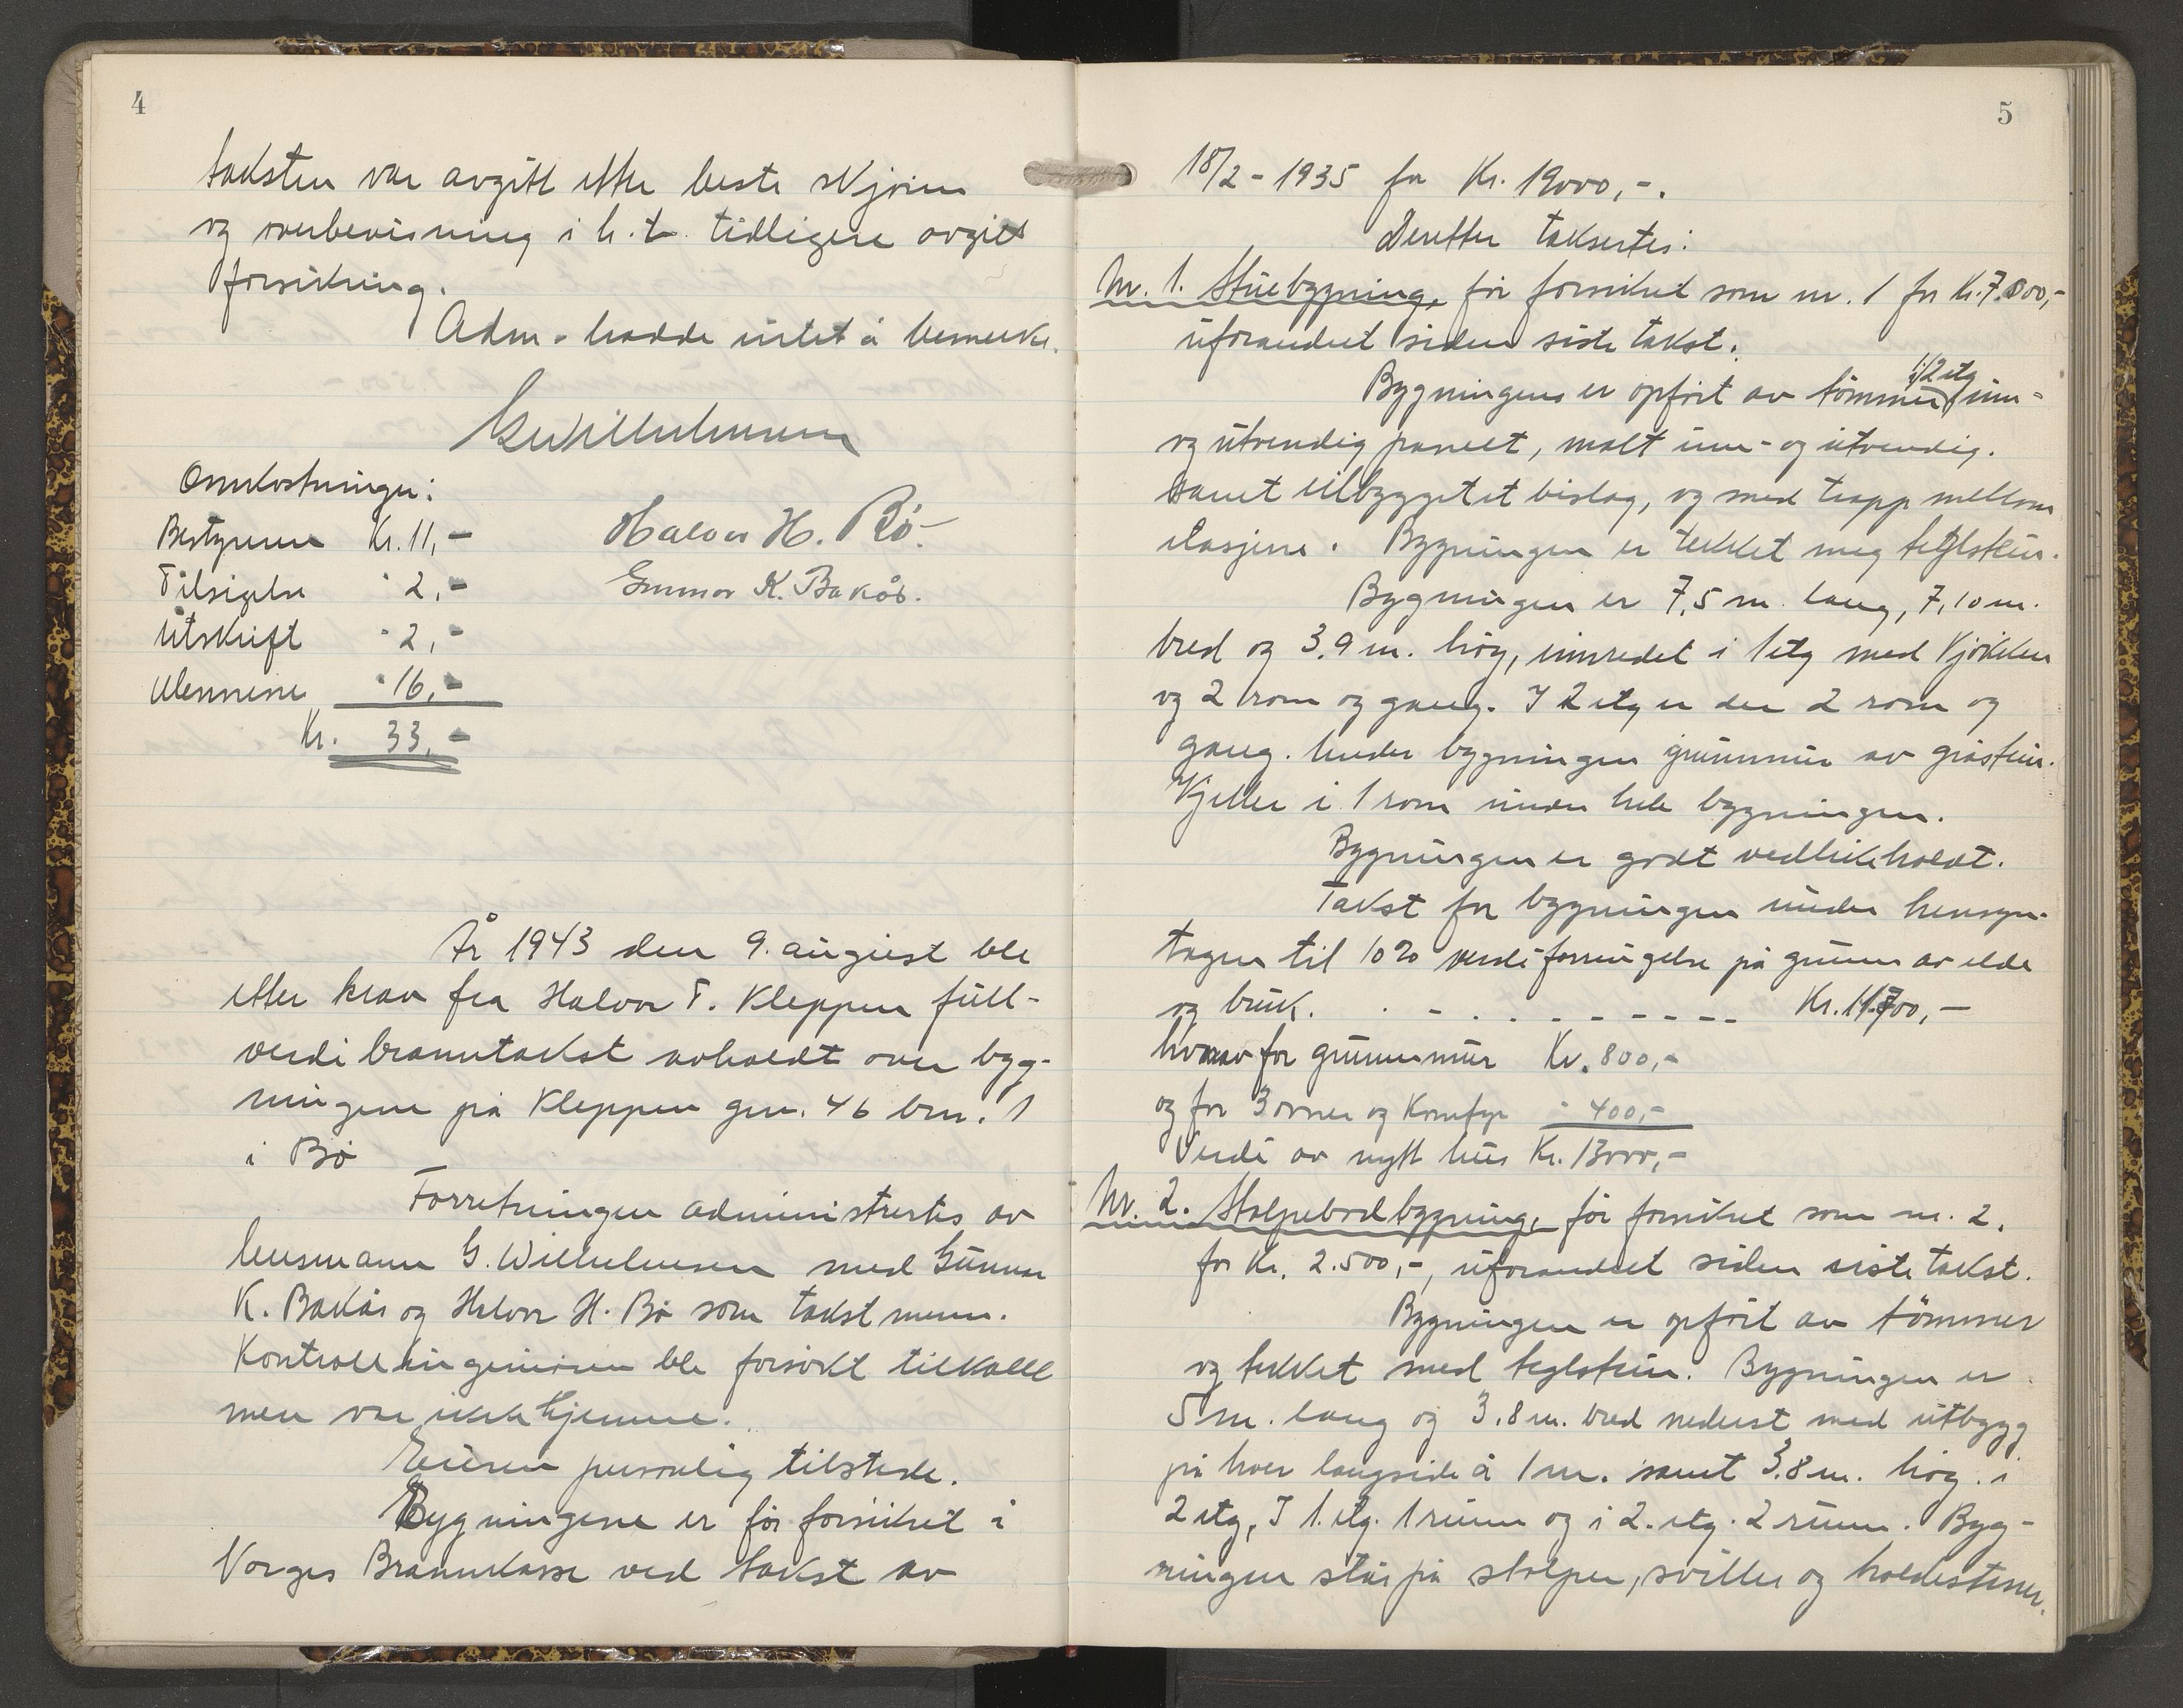 4
taksten var avgitt etter beste skjönn
og overbevisning i h.t. tidligere avgitt
forsikring.
Adm. hadde intet å bemerke.
G Wilhelmsen
Omkostninger:
Bestyreren Kr. 11,-
Halvor H. Bö.
Tilsigelse " 2,-
Gunnar K. Bakås.
Utskrift " 2,-
Mennene " 16,-
Kr. 33,-
År 1943 den 9. august ble
etter krav fra Halvor T. Kleppen full-
verdi branntakst avholdt over byg-
ningene på Kleppen gnr. 46 bnr. 1
i Bö
Forretningen administrertes av
lensmann G. Wilhelmsen med Gunnar
K. Bakås og Halvor H. Bö som takstmenn.
Kontrollingeniören ble forsökt tilkalt
men var ikke hjemme.
Eieren personlig tilstede.
Bygningene er för forsikret i
Norges Brannkasse ved takst av
5
18/2 - 1935 for Kr. 19000,-.
Deretter taksertes:
Nr. 1. Stuebygning, för forsikret som nr. 1 for Kr. 7.000,-
uforandret siden siste takst.
1 1/2 etg
Bygningens er opfört av tömmer inn-
og utvendig panelt, malt inn- og utvendig.
samt tilbygget et bislag, og med trapp mellom
etasjene. Bygningen er tekket meg teglstein.
Bygningen er 7,5 m. lang, 7,10 m.
bred og 3,9 m. höy, innredet i 1 etg med kjökken
og 2 rom og gang. I 2 etg er der 2 rom og
gang. Under bygningen grunnmur av gråstein.
Kjeller i 1 rom under hele bygningen.
Bygningen er godt vedlikeholdt.
Takst for bygningen under hensyn-
tagen til 10% verdiforringelse på grunn av elde
og bruk. . - . . . - - - - - Kr. 11.700,-
hvorav for grunnmur Kr. 800,-
og for 3 ovner og komfyr " 400,-
Verdi av nytt hus Kr. 13000,-
Nr. 2. Stolpebodbygning, för forsikret som nr. 2.
for Kr. 2.500,-, uforandret siden siste takst.
Bygningen er opfört av tömmer
og tekket med teglstein. Bygningen er
5 m. lang og 3.8 m. bred nederst med utbygg
på hver langside å 1 m. samt 3.8 m. höy. i
2 etg, I 1. etg. 1 rum og i 2. etg. 2 rumm. Byg-
ningen står på stolper, sviller og holdestener.